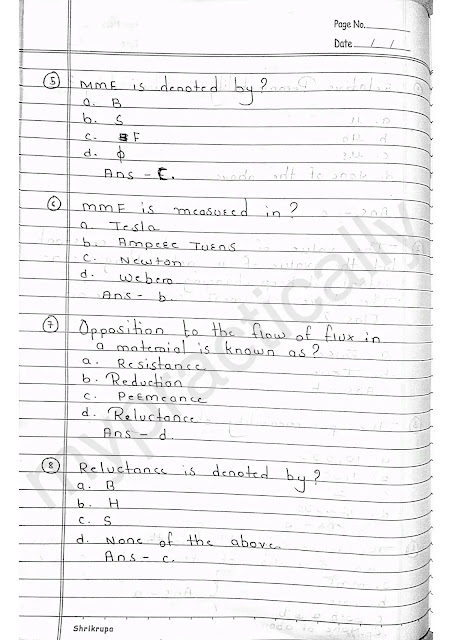 Page No.
Date / /
5 MMF is denoted by?
a. B
b. S
c. F
d. ϕ
Ans - C.
6 MMF is measured in?
a. Tesla
b. Ampere Turns
c. Newton
d. Webero
Ans - b.
7 Opposition to the flow of flux in
a material is known as?
a. Resistance
b. Reduction
c. Permeance
d. Reluctance
Ans - d.
8 Reluctance is denoted by?
a. B
b. H
c. S
d. None of the above.
Ans - c.
mypractically
Shrikrupa